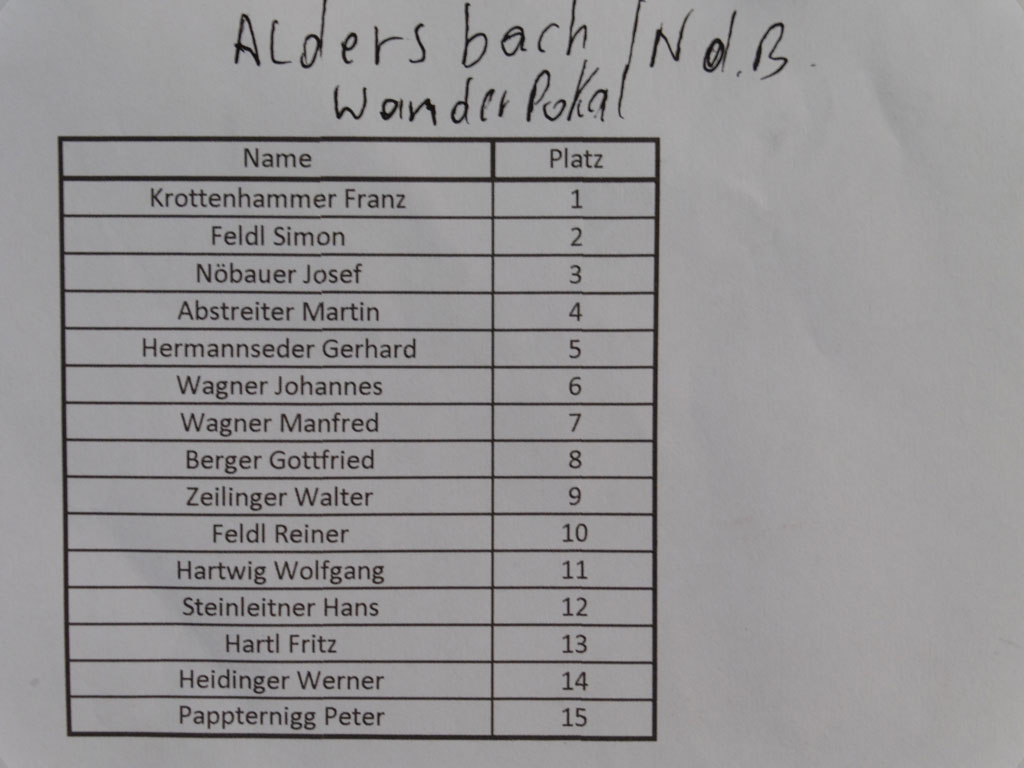 Aldersbach / Nd.B.
Wanderpokal
Name Platz
Krottenhammer Franz 1
Feldl Simon 2
Nöbauer Josef 3
Abstreiter Martin 4
Hermannseder Gerhard 5
Wagner Johannes 6
Wagner Manfred 7
Berger Gottfried 8
Zeilinger Walter 9
Feldl Reiner 10
Hartwig Wolfgang 11
Steinleitner Hans 12
Hartl Fritz 13
Heidinger Werner 14
Pappternigg Peter 15